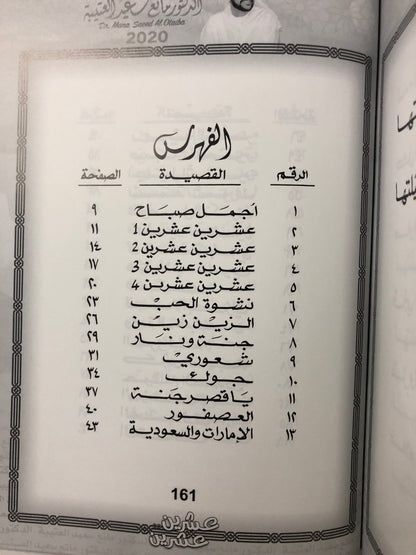 الدكتور مانع سعيد العتيبة
Dr. Mana Saeed Al Otaiba
2020
الفهرس
الرقم القصيدة الصفحة
١ أجمل صباح ٩
٢ عشرين عشرين 1 ١١
٣ عشرين عشرين 2 ١٤
٤ عشرين عشرين 3 ١٧
٥ عشرين عشرين 4 ٢٠
٦ نشوة الحب ٢٣
٧ الزين زين ٢٦
٨ جنة ونار ٢٩
٩ شعوري ٣١
١٠ جولك ٣٤
١١ يا قصر جنة ٣٧
١٢ العصفور ٤٠
١٣ الإمارات والسعودية ٤٣
161
عشرين
عشرين